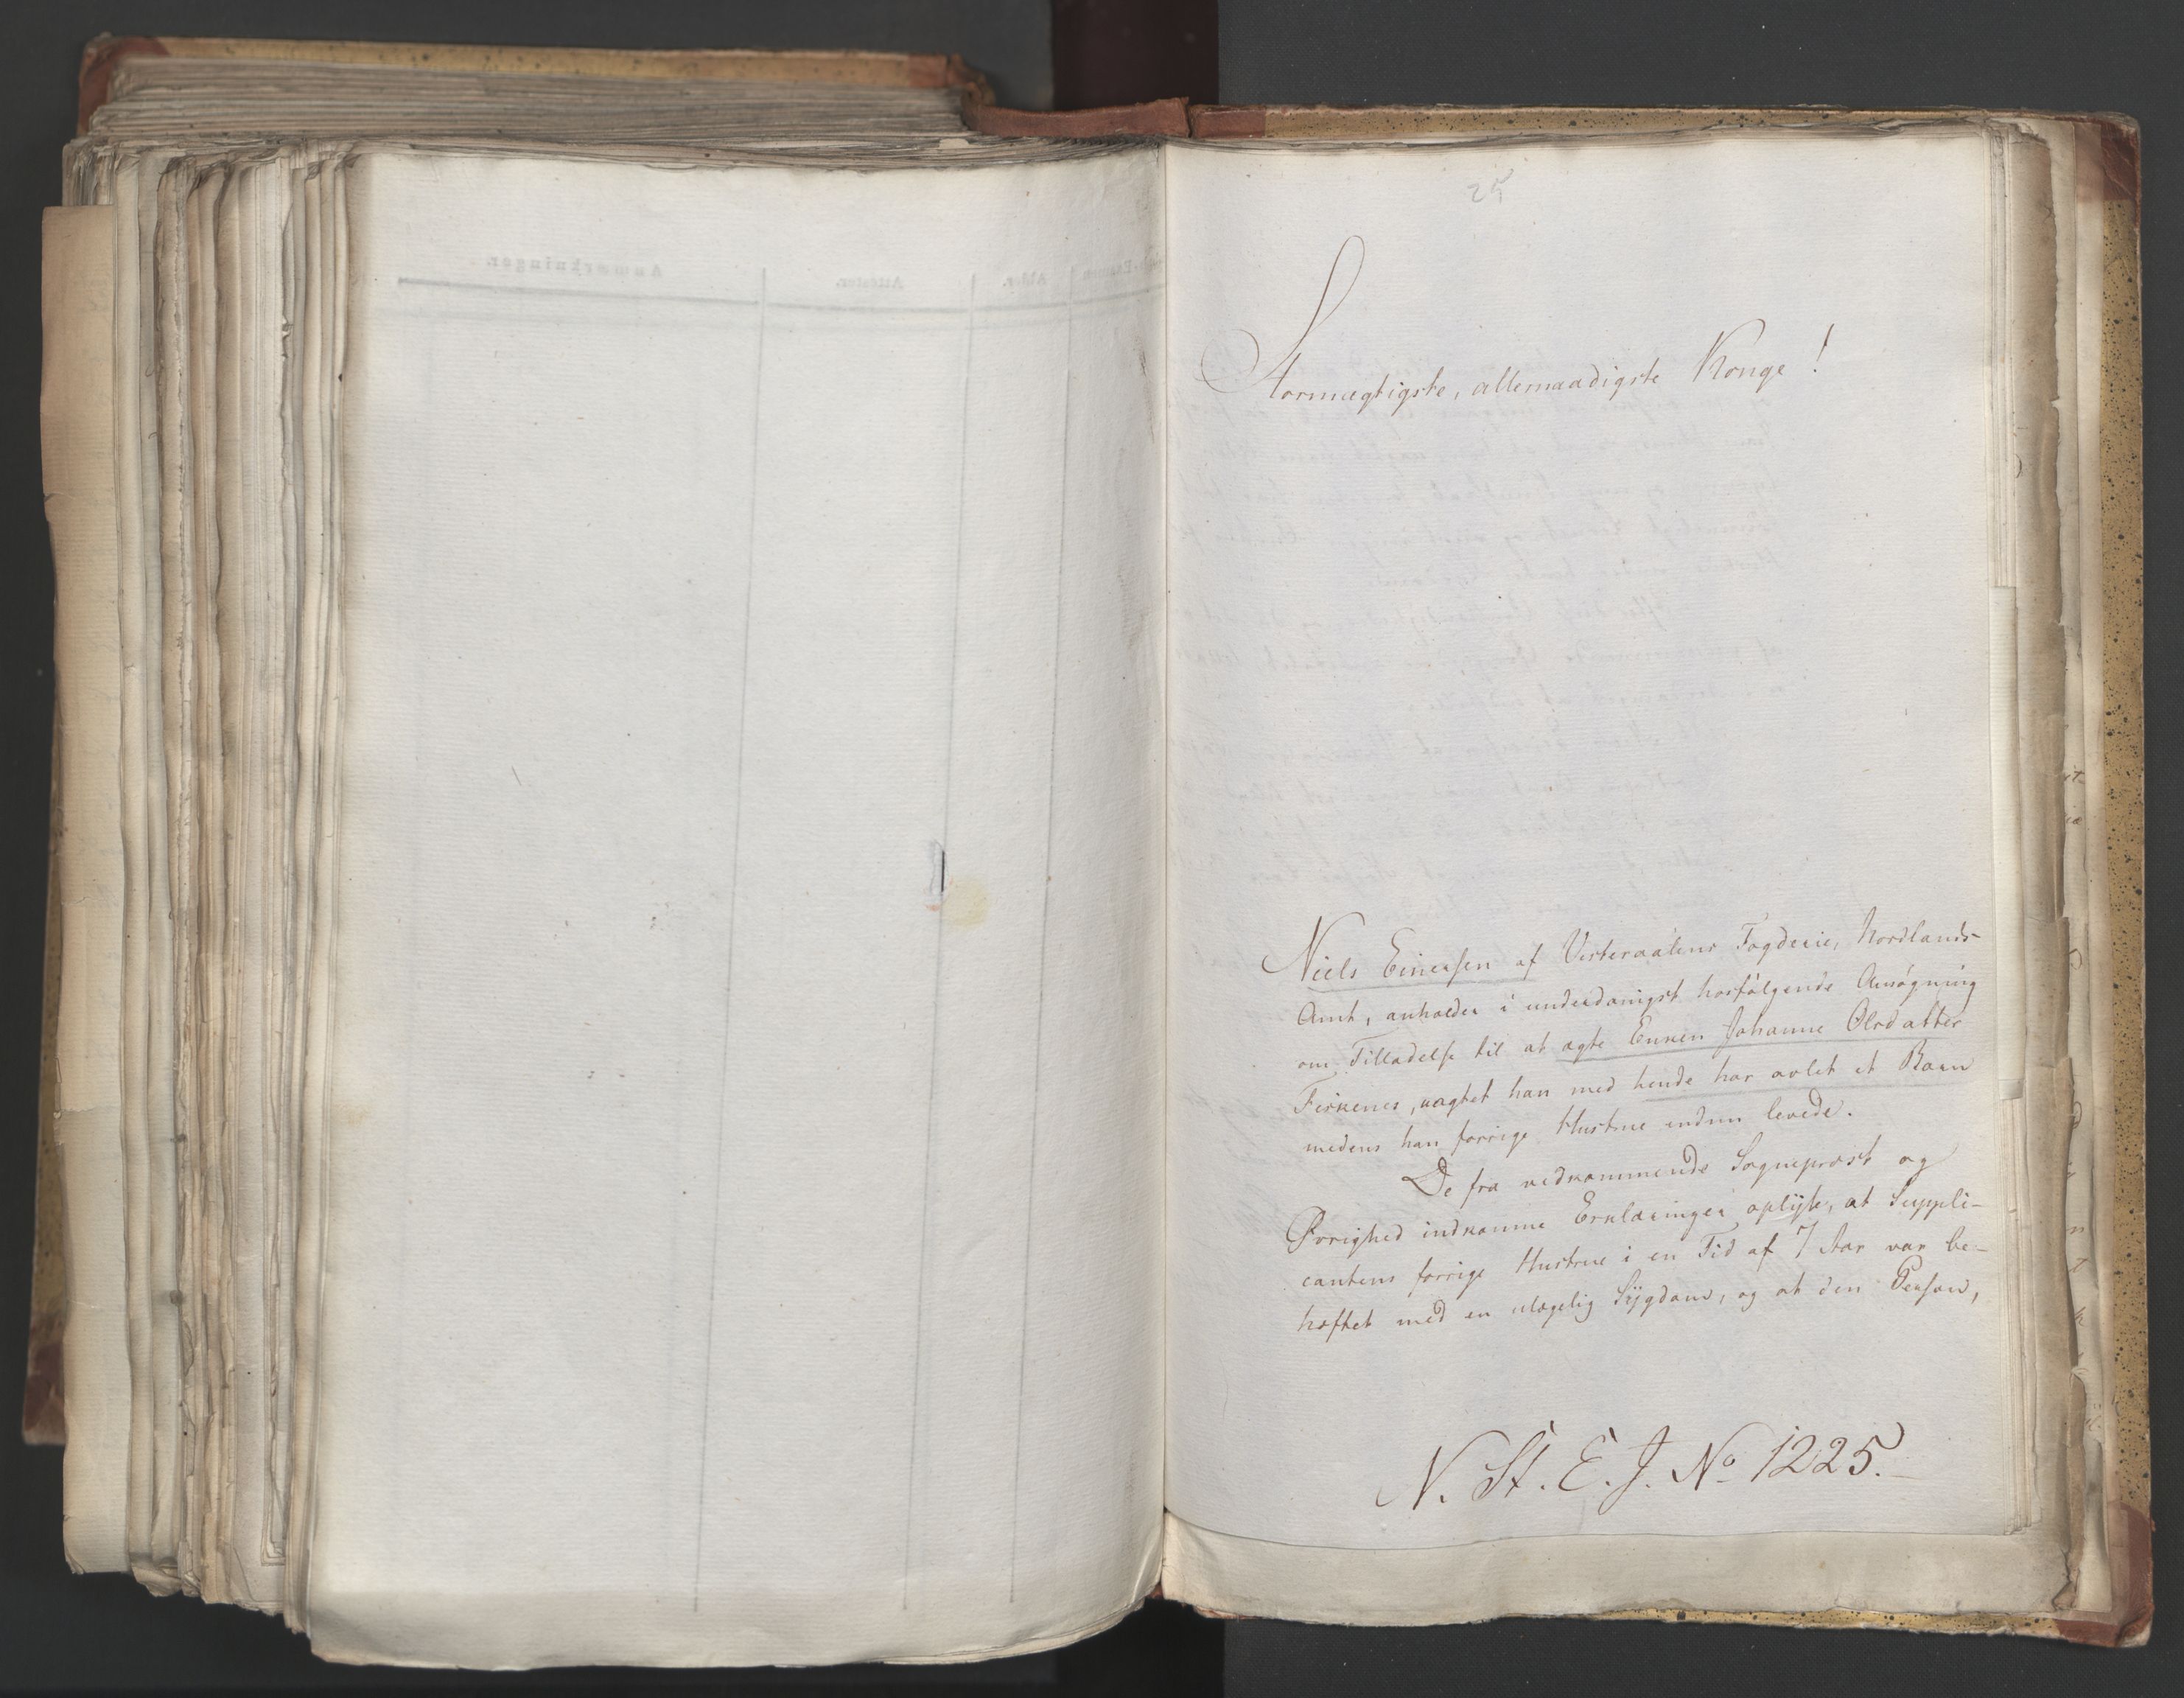 25
Stormægtigste, allernaadigste Konge!
Niels Einersen af Vesteraalens Fogderie, Nordlands-
Amt, anholder i underdanigst hosfølgende Ansøgning
om Tilladelse til at ægte Enken Johanne Olsdatter
Fiskenes, uagtet han med hende har avlet et Barn
medens han forrige Hustrue endnu levede.
De fra vedkommende Sognepræst og
Øvrighed indkomne Erklæringer oplyse, at Suppli-
cantens forrige Hustrue i en Tid af 7 Aar var be-
hæftet med en ulægelig Sÿgdom, og at den Person,
N. St. E. J. No 1225.